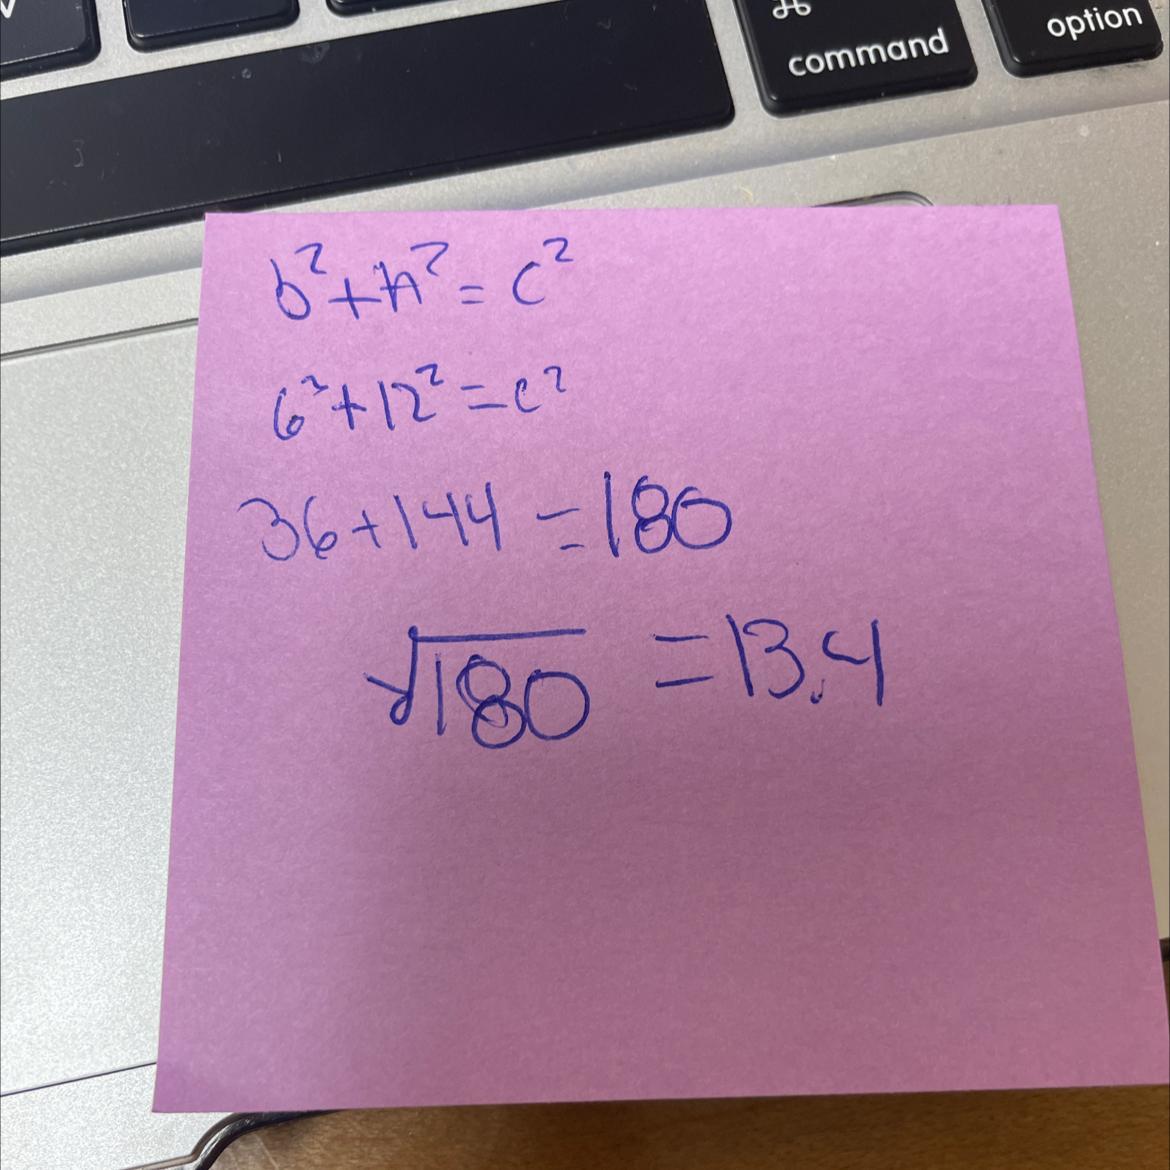 ⌘
command
option
b²+h²=c²
6²+12²=c²
36+144=180
√180=13.4